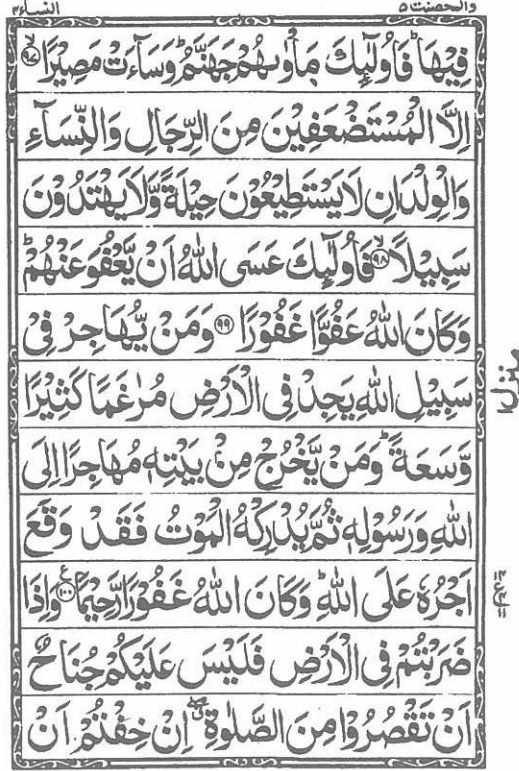 والمحصنت ۵ النساء ۴
فِيْهَا ؕ فَاُولٰٓئِكَ مَاْوٰىهُمْ جَهَنَّمُ ؕ وَسَآءَتْ مَصِيْرًا ۙ‏﴿۹۷﴾
اِلَّا الْمُسْتَضْعَفِيْنَ مِنَ الرِّجَالِ وَالنِّسَآءِ
وَالْوِلْدَانِ لَا يَسْتَطِيْعُوْنَ حِيْلَةً وَّلَا يَهْتَدُوْنَ
سَبِيْلًا ۙ‏﴿۹۸﴾ فَاُولٰٓئِكَ عَسَى اللّٰهُ اَنْ يَّعْفُوَ عَنْهُمْ ؕ
وَكَانَ اللّٰهُ عَفُوًّا غَفُوْرًا ﴿۹۹﴾ وَمَنْ يُّهَاجِرْ فِىْ
سَبِيْلِ اللّٰهِ يَجِدْ فِى الْاَرْضِ مُرٰغَمًا كَثِيْرًا
وَّسَعَةً ؕ وَمَنْ يَّخْرُجْ مِنْۢ بَيْتِهٖ مُهَاجِرًا اِلَى
اللّٰهِ وَرَسُوْلِهٖ ثُمَّ يُدْرِكْهُ الْمَوْتُ فَقَدْ وَقَعَ
اَجْرُهٗ عَلَى اللّٰهِ ؕ وَكَانَ اللّٰهُ غَفُوْرًا رَّحِيْمًا ﴿۱۰۰﴾ وَاِذَا
ضَرَبْتُمْ فِى الْاَرْضِ فَلَيْسَ عَلَيْكُمْ جُنَاحٌ
اَنْ تَقْصُرُوْا مِنَ الصَّلٰوةِ ۖ اِنْ خِفْتُمْ اَنْ
منزل ۱